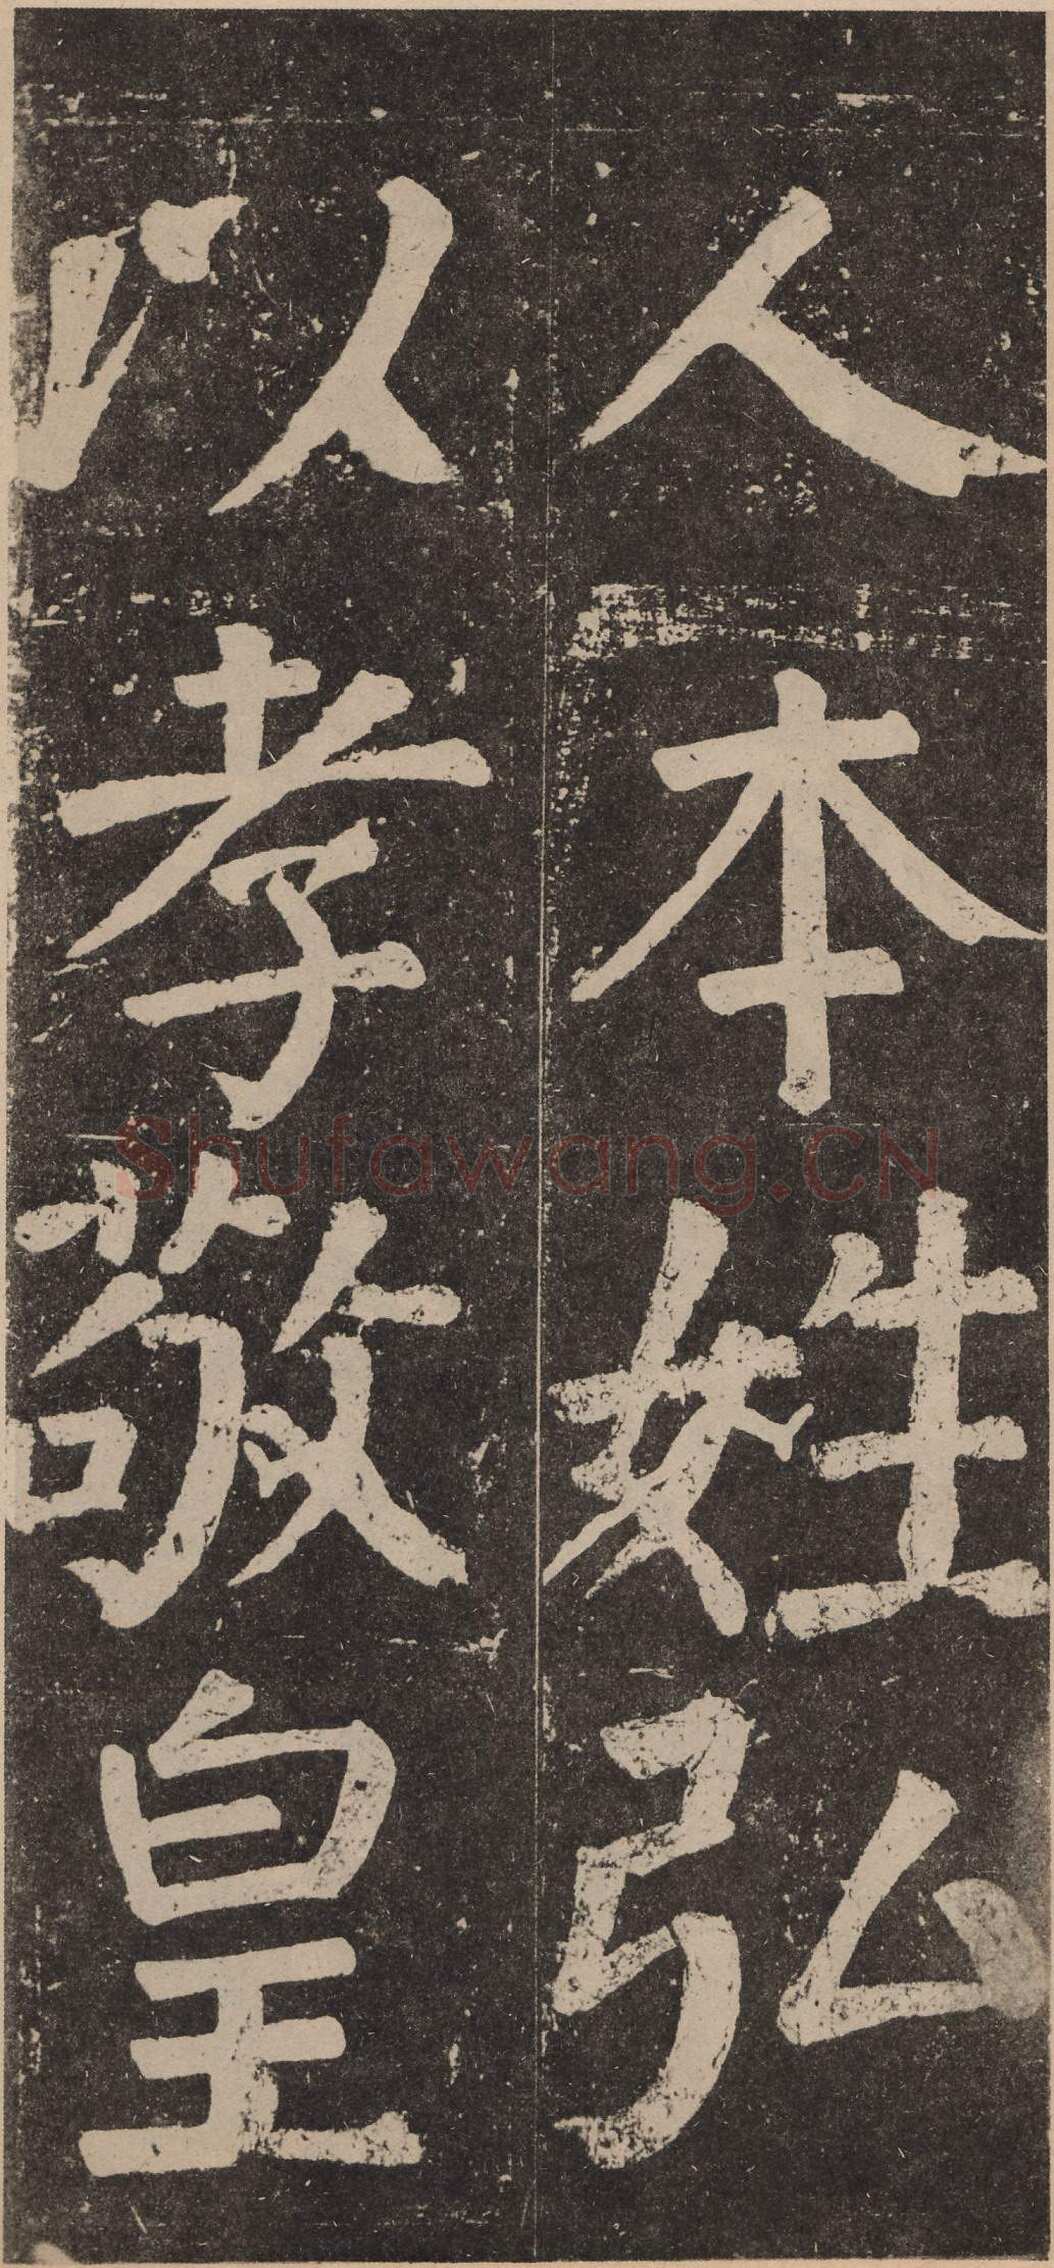 人本姓弘
以孝敬皇
Shufawang.CN